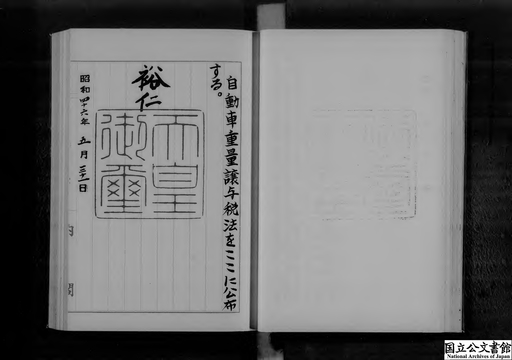 自動車重量譲与税法をここに公布
する。
裕仁
天皇
御璽
昭和四十六年 五月 三十一日
国立公文書館
National Archives of Japan